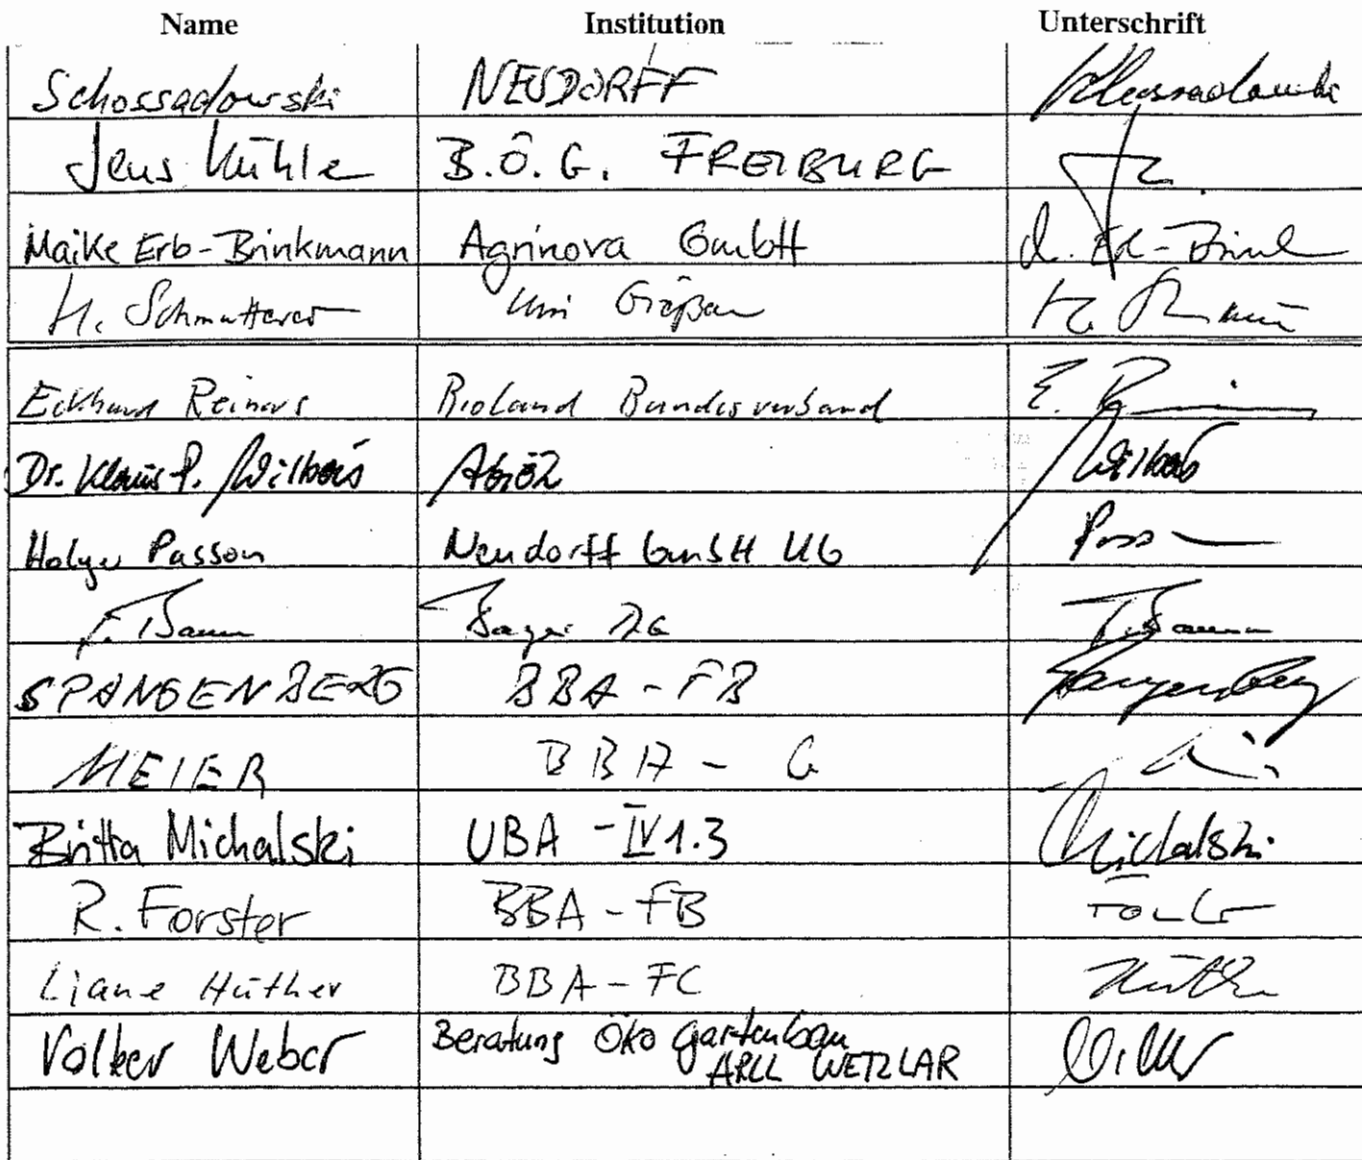 Name Institution Unterschrift
Schossadowski NEUDORFF
Jens Kühle B.Ö.G. FREIBURG
Maike Erb-Brinkmann Agrinova GmbH
H. Schmutterer Uni Gießen
Eckhard Reiners Bioland Bundesverband E.
Dr. Klaus P. Wilbois AGÖL Wilbois
Holger Passon Neudorff GmbH KG Pass
F. Baum Bayer AG F. Baum
SPANGENBERG BBA - FB Spangenberg
MEIER BBA - G
Britta Michalski UBA - IV 1.3 Michalski
R. Forster BBA - FB
Liane Hüther BBA - FC Hüther
Volker Weber Beratung Öko Gartenbau
ARLL WETZLAR